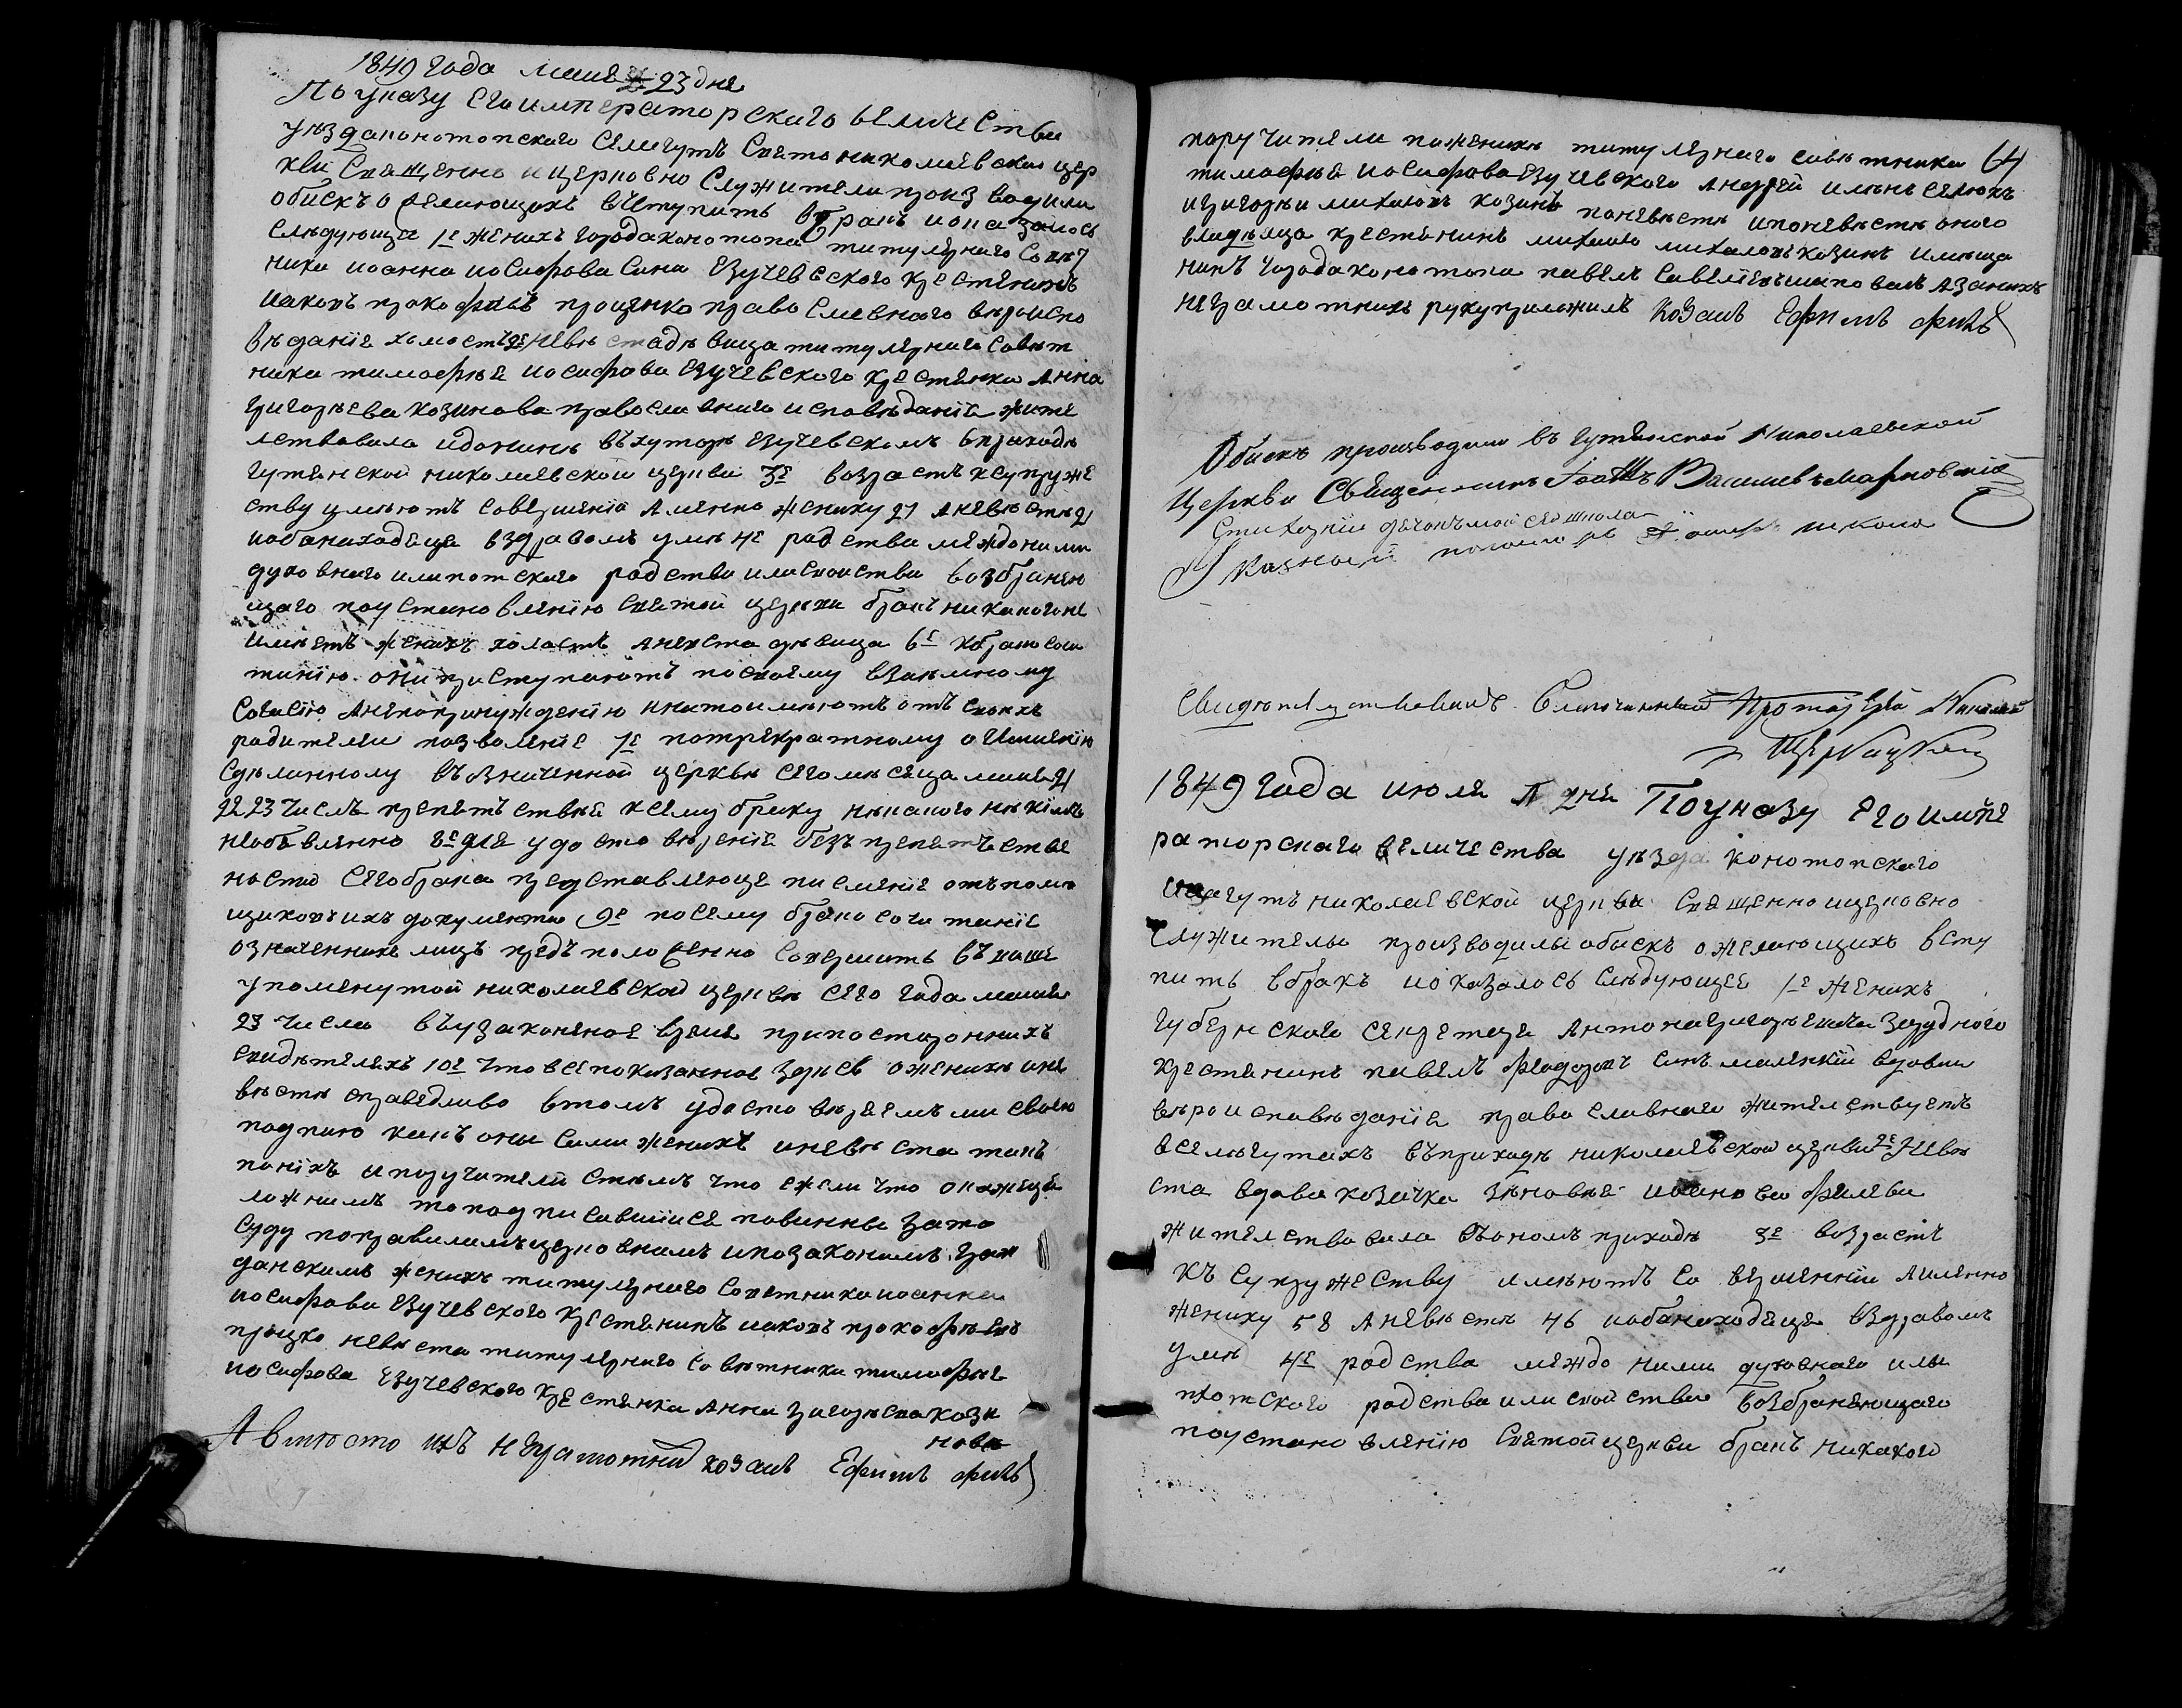 1849 года мая 23 дня
По указу Его императорского величества
уезда конотопского Селагутъ Свято николаевской цер
кви Священно и церковно Служители производили
обискъ о желающихъ вступить вбракъ и оказалось
Следующее 1е женихъ города конотопа титулярного Совет
ника иоанна иосифова сина Езучевского крестянинъ
иаковъ прокофиевъ проценко православного вероиспо
вѣдания холостъ 2е Невѣста дѣвица титулярного Совѣт
ника тимофѣя иосифова Езучевского крестянка Анна
григорѣева козинова православного исповѣдания жите
лствовала идонинѣ въхуторѣ Езучевскомъ вприходѣ
гутянской николаевской церкви 3е возрастъ ксупруже
ству имѣютъ совершений Аменно жениху 21 Аневѣстѣ 21
иобанаходяца вздравомъ умѣ 4е родства междо ними
духовного или потского родства или своиства возбраняю
щаго поустановлению Святой церкви бракъ никакого не
имѣетъ женихъ холостъ Аневеста дѣвица 6е Кбрако соче
танию они приступаютъ посвоему взаимному
Согласию Анепопринуждению инатоимѣютъ отъ своихъ
родителей позволение 7е потрекратному оглашению
Сделанному въозначенной церквѣ Сего мѣсеца мая 21
22 23 числъ препятствия ксему браку никакого никимъ
необявленно 8е для удостовѣрения безъ препятстве
ности Сегобрака представляюця писмение отъ помѣ
щиковъ ихъ документи 9е посему брако сочитание
означенних лицъ предъположенно Совершить въ више
упомянутой николаевской церквѣ сего года мая
23 числа въузаконеное время припосторонних
свидѣтеляхъ 10е Что все показанное здесь о женихѣ и не
вѣстѣ справедливо втомъ удостовѣряемъ ми своею
подписю какъ они Сами женихъ иневѣста такъ
поних и поручители стѣмъ что ежели что окажеця
ложнимъ то подписавшиися повинны зато
Суду поправиламъ церковнимъ ипозаконамъ граж
данскимъ женихъ титулярного Советника иоанна
иосифова Езучевского Крестянинъ иаковъ прокофьевъ
процко невѣста титулярного Совѣтника тимофѣя
иосифова Езучевского крестянка Анна григорѣева кози
нова
А вмѣсто ихъ неграмотних козакъ Ефимъ филь
поручители пожениху титулярного савѣтника 64
тимофѣя иосифова Езучевского Андрей
игригорѣи михаиловъ козинъ поневѣстѣ ипоневѣстѣ оного
владѣлца крестянинъ михаило михаиловъ козинъ имѣща
нинъ города конотопа павелъ Савелиевъ шаповалъ Азаних
неграмотних руку приложилъ Козакъ Ефимъ филь
Обискъ производили въ Гутянской Николаевской
Церкви Священникъ Іоаннъ Василиевъ Марковскій
Свидѣтелствовалъ Благочинный Протоіерей Николай
1849 года июля дня Поуказу Его импе
раторскаго величества уезда конотопского
гутъ николаевской церкви Священно ицерковно
Служители производили обискъ о желающихъ всту
пить вбракъ иоказалось Слѣдующее 1е женихъ
губернского Секретаря Антона григориевича Зарудного
крестянинъ павелъ федоровъ синъ маленкий вдовий
вѣроисповѣдание православного жителствуетъ
вселѣгутахъ въприходѣ николаевской церкви 2е Невѣ
ста вдова козачка Зѣновия иванова филева
жителствовала въономъ приходѣ 3е возрастъ
къ Супружеству имѣютъ Совершенний Аименно
жениху 58 Аневѣстѣ 46 иобанаходяця вздравомъ
умѣ 4е родства междо ними духовнаго или
плотского родства или свойства возбраняющаго
поустановлению Святой церкви бракъ никакого